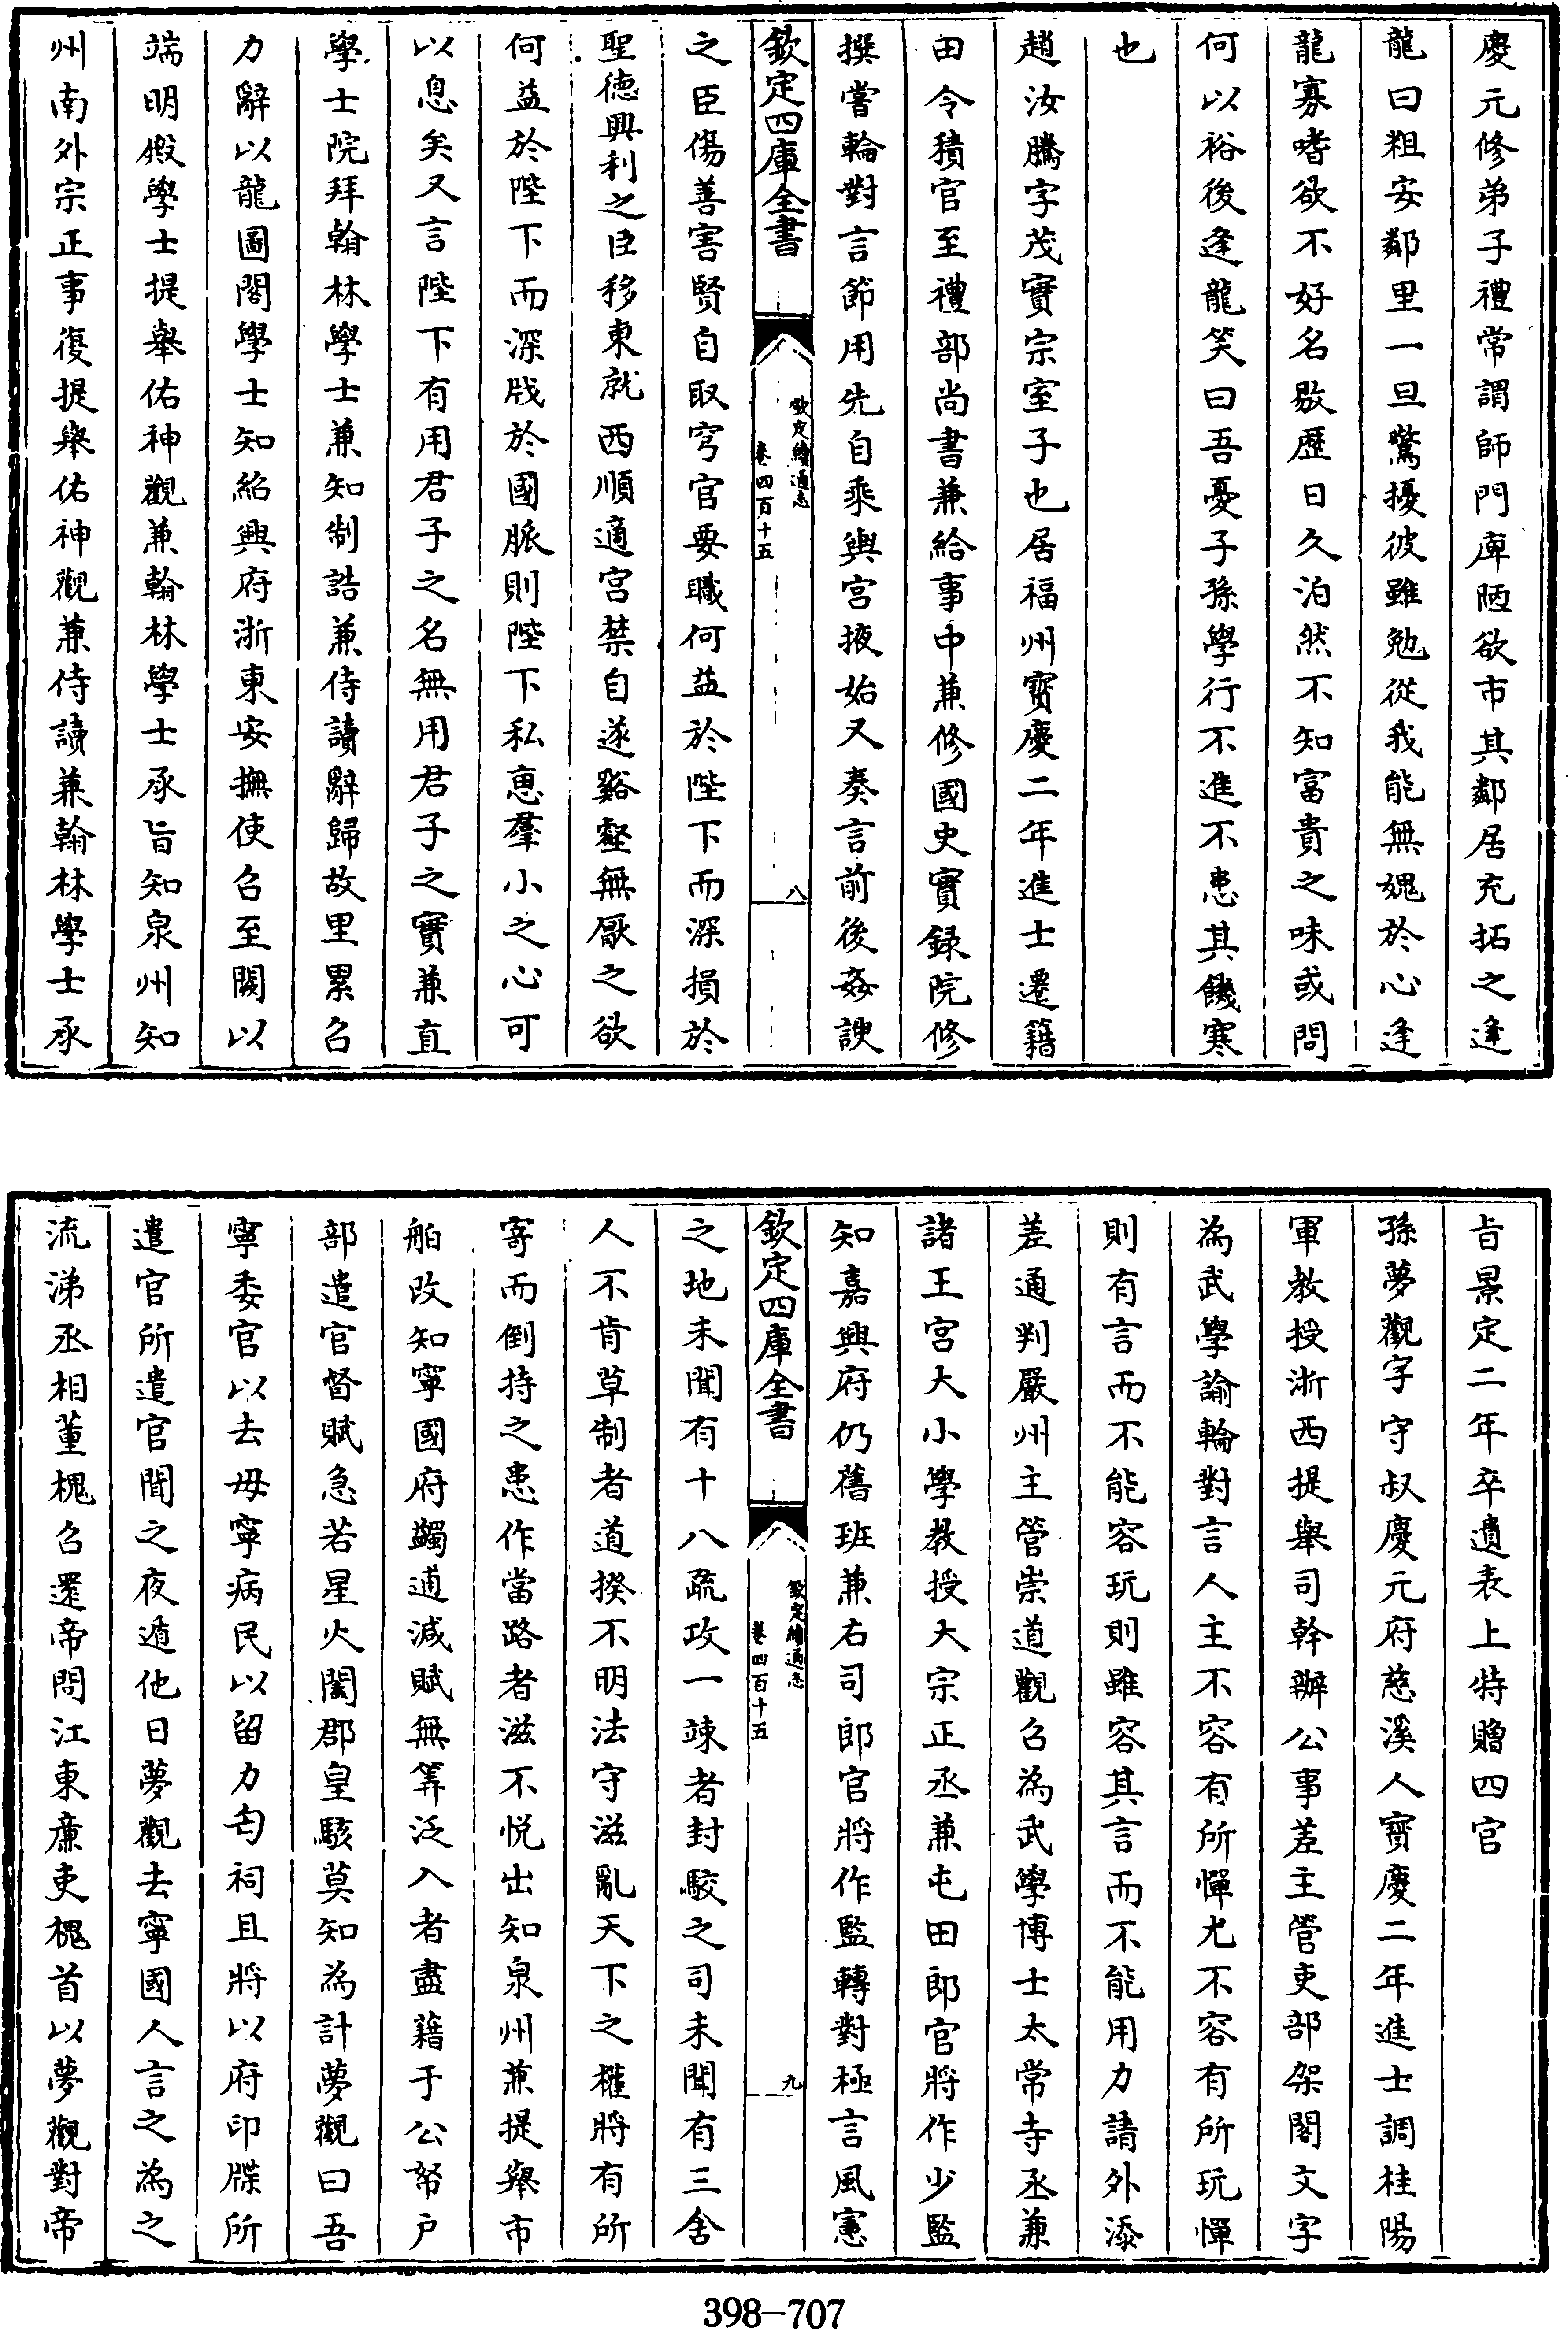 慶元修弟子禮常謂師門庳陋欲市其鄰居充拓之逢
龍曰粗安鄰里一旦驚擾彼雖勉從我能無媿於心逢
龍寡嗜欲不好名敭歷日久泊然不知富貴之味或問
何以裕後逢龍笑曰吾憂子孫學行不進不患其饑寒
也
趙汝騰字茂實宗室子也居福州寳慶二年進士遷籍
田令積官至禮部尚書兼給事中兼修國史實録院修
撰嘗輪對言節用先自乘輿宫掖始又奏言前後姦諛
欽定四庫全書
欽定續通志
卷四百十五
八
之臣傷善害賢自取穹官要職何益於陛下而深損於
聖德興利之臣移東就西順適宫禁自遂谿壑無厭之欲
何益於陛下而深戕於國脈則陛下私恵羣小之心可
以息矣又言陛下有用君子之名無用君子之實兼直
學士院拜翰林學士兼知制誥兼侍讀辭歸故里累召
力辭以龍圖閣學士知紹興府浙東安撫使召至闕以
端明殿學士提舉佑神觀兼翰林學士承旨知泉州知
州南外宗正事復提舉佑神觀兼侍讀兼翰林學士承
旨景定二年卒遺表上特贈四官
孫夢觀字守叔慶元府慈溪人寳慶二年進士調桂陽
軍教授浙西提舉司幹辦公事差主管吏部架閣文字
為武學諭輪對言人主不容有所憚尤不容有所玩憚
則有言而不能容玩則雖容其言而不能用力請外添
差通判嚴州主管崇道觀召為武學博士太常寺丞兼
諸王宫大小學教授大宗正丞兼屯田郎官將作少監
知嘉興府仍舊班兼右司郎官將作監轉對極言風憲
欽定四庫全書
欽定續通志
卷四百十五
九
之地未聞有十八疏攻一竦者封駮之司未聞有三舍
人不肯草制者道揆不明法守滋亂天下之權將有所
寄而倒持之患作當路者滋不悦出知泉州兼提舉市
舶改知寧國府蠲逋減賦無筭泛入者盡籍于公帑户
部遣官督賦急若星火闔郡皇駭莫知為計夢觀曰吾
寧委官以去毋寧病民以留力匄祠且將以府印牒所
遣官所遣官聞之夜遁他日夢觀去寧國人言之為之
流涕丞相董槐召還帝問江東廉吏槐首以夢觀對帝
398-707